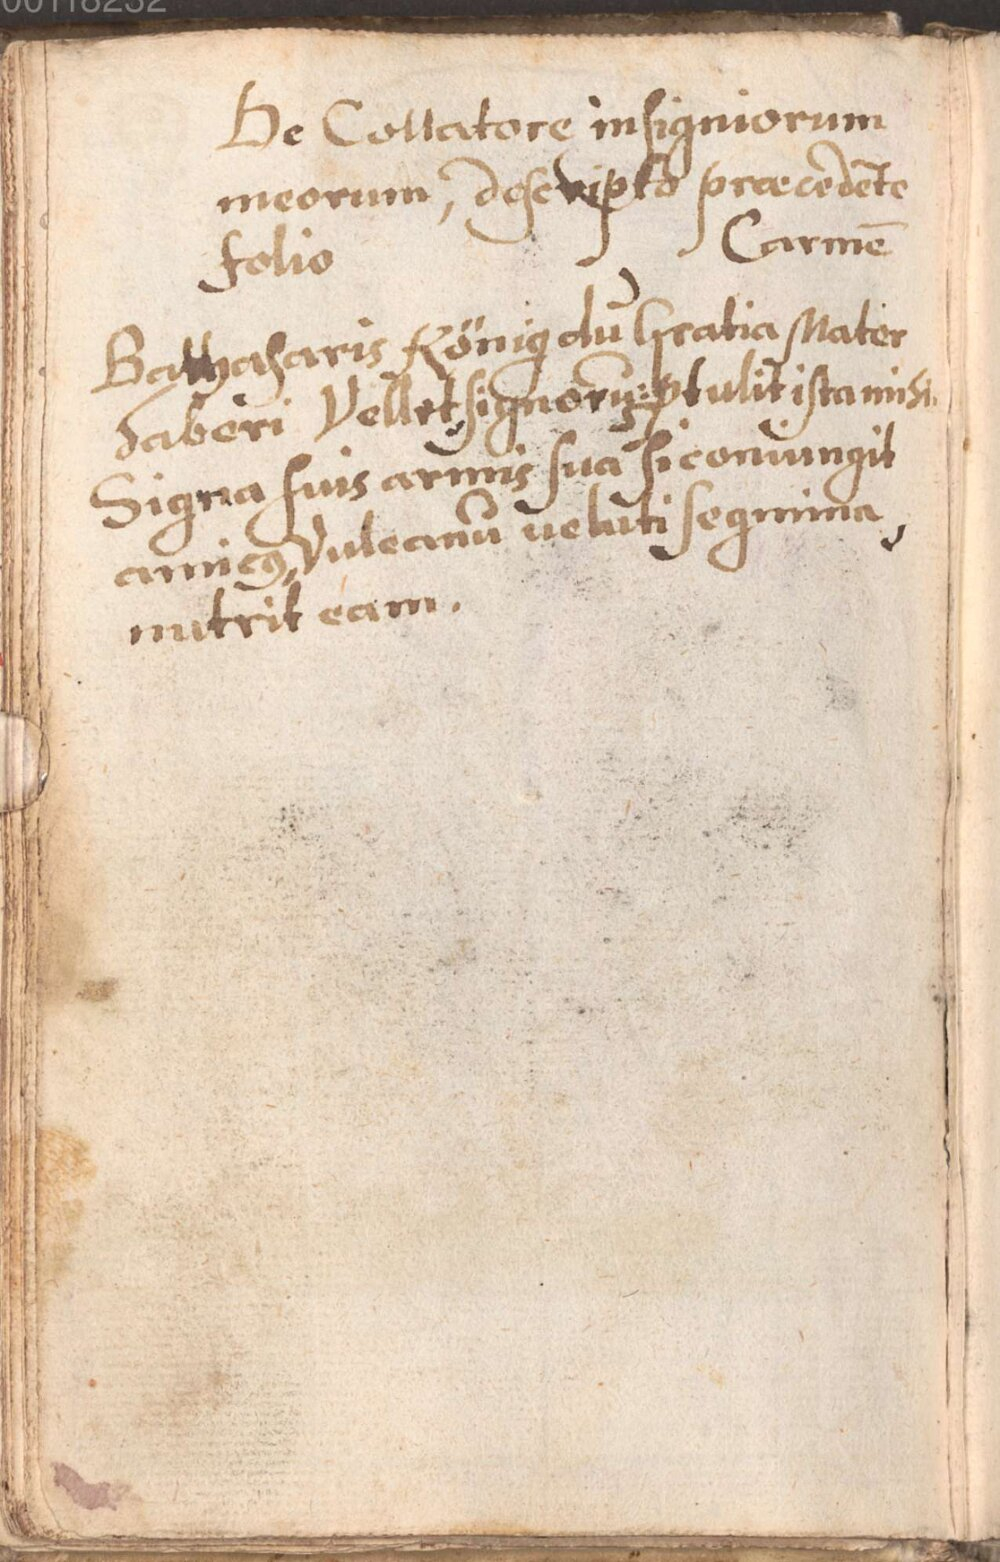 00118232
De Collatore insigniorum
meorum, descripto præcedēte
folio Carmē
Balthasaris König dū Gratia Mater
haberi Vellet signorū: tulit ista mihi.
Signa suis armis sua si coniungit
amicus, Vulcanū veluti segmina,
nutrit eam.